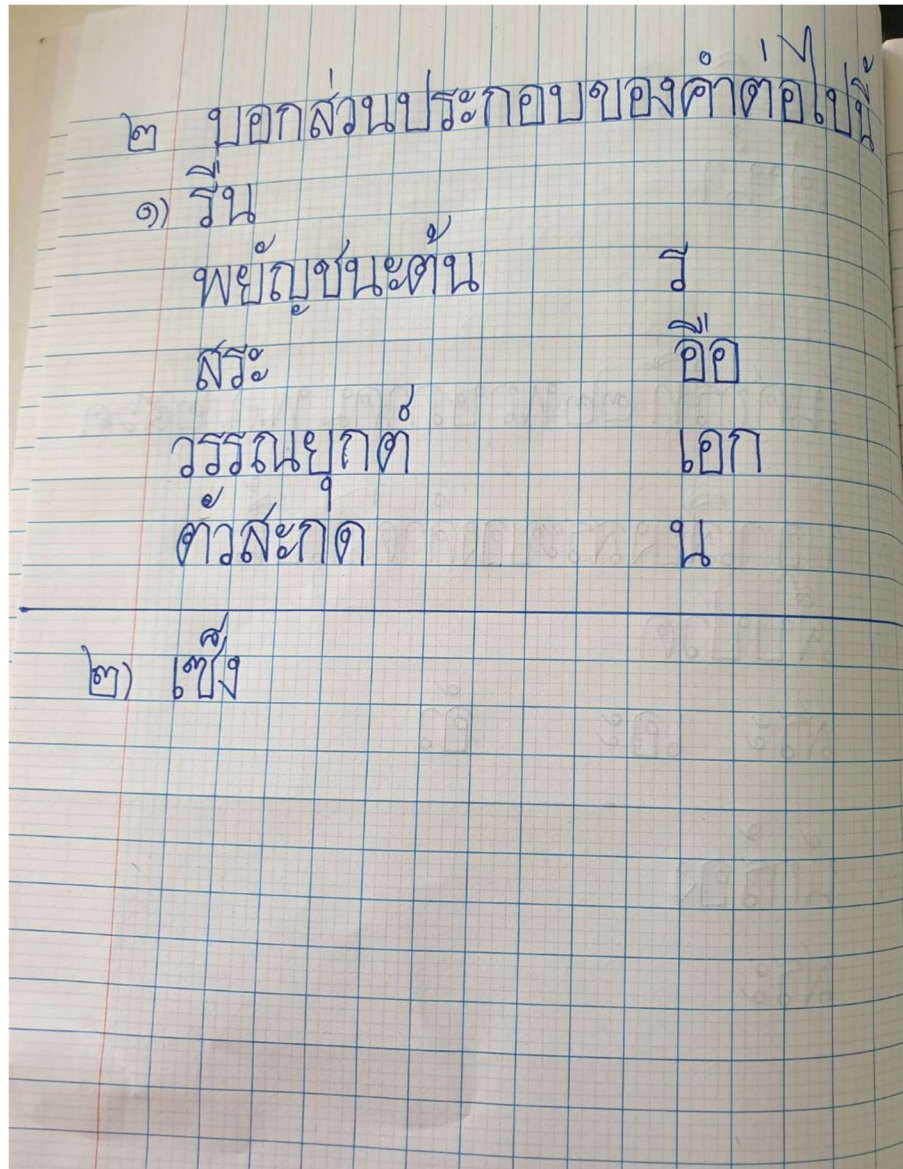 ๒ บอกส่วนประกอบของคำต่อไปนี้
๑) รื่น
พยัญชนะต้น ร
สระ อือ
วรรณยุกต์ เอก
ตัวสะกด น
๒) เซ็ง